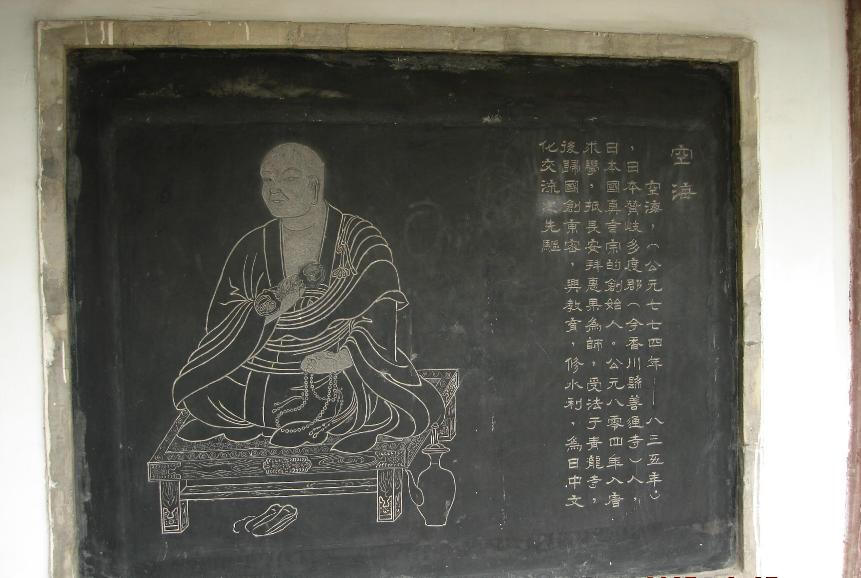 空海
空海，（公元七七四年——八三五年，）
，日本贊岐多度郡（今香川縣善通寺）人，
日本國真言宗的創始人。公元八零四年入唐
求學，抵長安拜惠果為師，受法于青龍寺，
後歸國創東密，興教育，修水利，為日中文
化交流之先驅